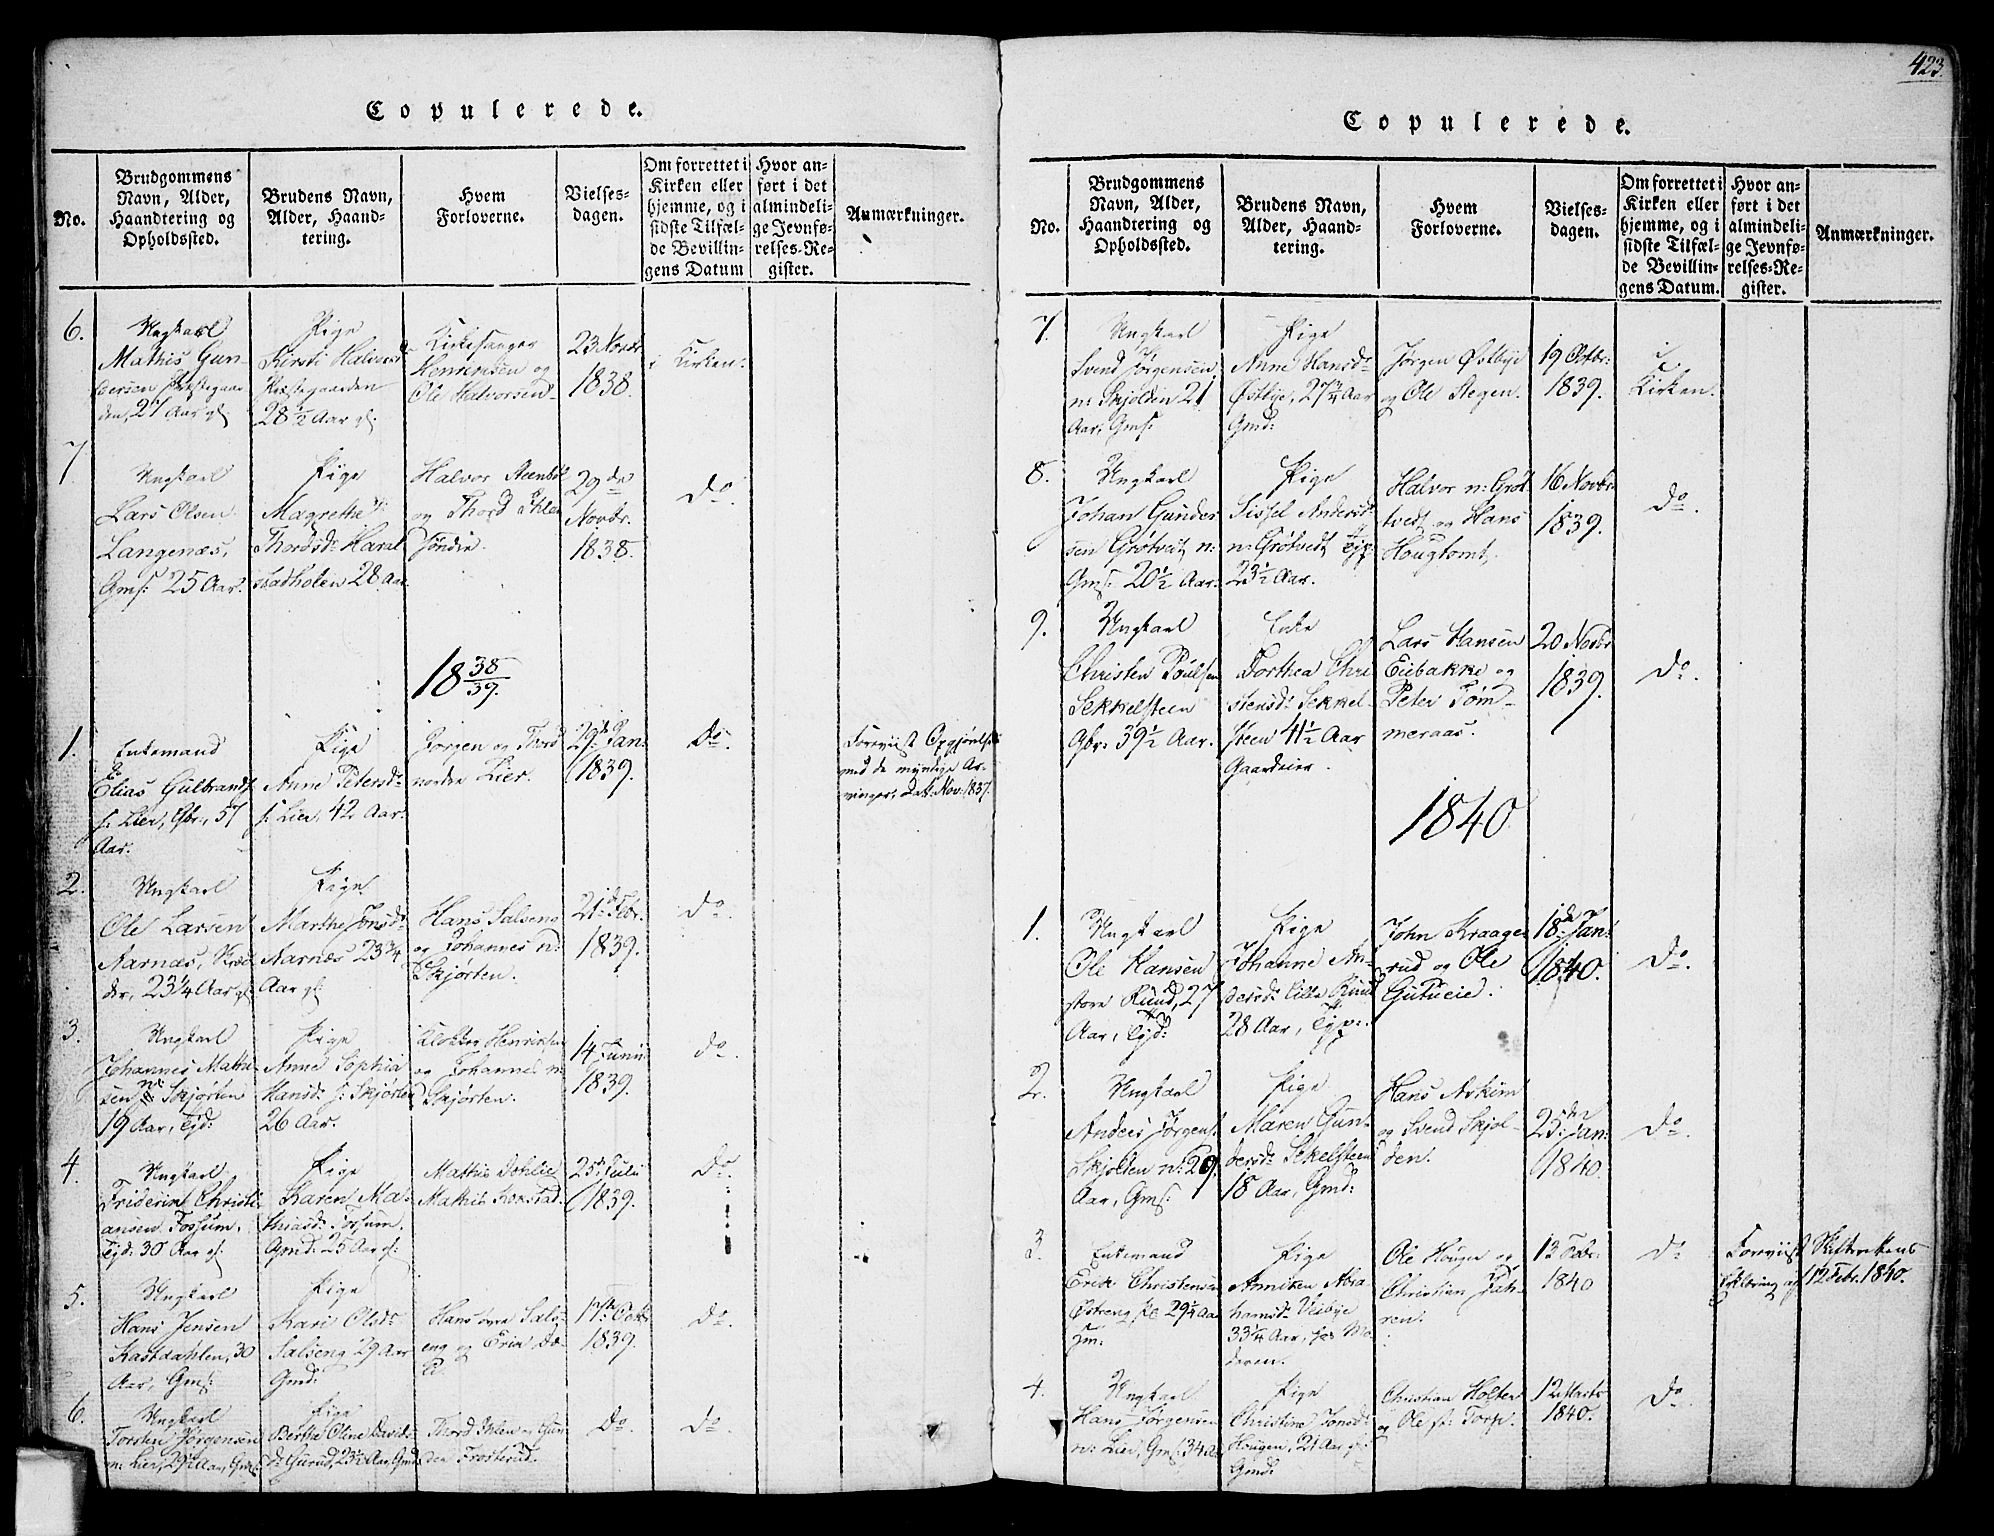 Copulerede.
No.
Brudgommens
Navn, Alder,
Haandtering og
Opholdssted.
Brudens Navn,
Alder, Haand-
tering.
Hvem
Forloverne.
Vielses-
dagen.
Om forrettet i
Kirken eller
hjemme, og i
sidste Tilfæl-
de Bevillin-
gens Datum
Hvor an-
ført i det
almindeli-
ge Jevnfø-
relses-Re-
gister.
Anmærkninger.
6.
Ungkarl
Mathis Gun-
dersen Præstegaar
den, 27 Aar gl
Pige
Kirsti Halvorsd
Præstegaarden
28½ Aar gl.
Kirkesanger
Henriksen og
Ole Halvorsen
23 Novbr
1838.
i Kirken.
7
Ungkarl
Lars Olsen
Langenæs,
Gms: 25 Aar.
Pige
Magrethe
Thordsd: Haral
stadholen 28 Aar
Halvor Steenbøl
og Thord Ihlen
søndre.
29de
Novbr.
1838.
Do.
18 38/39.
1.
Enkemand
Elias Gulbrands
s: Lier, Gbr., 57
Aar.
Pige
Anne Petersd:
s: Lier, 42 Aar.
Jørgen og Thord
nordre Lier.
29d Jan:
1839.
Do.
Foreviist Opgjørelse
med de myndige Ar-
vinger, Dat. Nov: 1837.
2.
Ungkarl
Ole Larsen
Narnæs, Skræd
der, 23¼ Aar gl
Pige
Marthe Jonsd:
Narnæs 23¾
Aar gl
Hans Salseng
og Johannes n:
Skjørten.
21d Febr.
1839.
Do.
3.
Ungkarl
Johannes Mathi
sen n: Skjørten
19 Aar, Tjd:
Pige
Anne Sophia
Hansd: s: Skjørten
26 Aar.
Klokker Henriksen
og Johannes n:
Skjørten.
14 Junii
1839.
Do.
4.
Ungkarl
Friderik Christi
ansen Fossum,
Tjd: 30 Aar gl.
Pige
Karen Ma-
thiasd: Fossum.
Gmd: 25 Aar gl.
Mathis Dahlie
Mathis Korstad.
25d Julii
1839.
Do
5.
Ungkarl
Hans Jensen
Kastdahlen, 30
Aar, Gms:
Pige
Kari Olsdr
Salseng 29 Aar
Gmd:
Hans øvre Sals-
eng og Erik Dæ-
li.
17d Octbr
1839.
Do.
6.
Ungkarl
Torsten Jørgensen
n: Lier, 29½ Aar, Gms:
Pige
Berthe Oline David-
d: Gurud, 23½ Aar, Gmd.
Thord Ihlen og Gun
den Frosterud.
Do.
Do.
423.
Copulerede.
No.
Brudgommens
Navn, Alder,
Haandtering og
Opholdssted.
Brudens Navn,
Alder, Haand-
tering.
Hvem
Forloverne.
Vielses-
dagen.
Om forrettet i
Kirken eller
hjemme, og i
sidste Tilfæl-
de Bevillin-
gens Datum.
Hvor an-
ført i det
almindeli-
ge Jevnfø-
relses-Re-
gister.
Anmærkninger.
7.
Ungkarl
Svend Jørgensen
n: Skjolden 21
Aar, Gms:
Pige
Anne Hansd:
Østbye, 27¾ Aar
Gmd:
Jørgen Østbye
og Ole Stegen.
19 Octbr:
1839.
i
Kirken.
8.
Ungkarl
Johan Gunder
sen Grøtvedt n:
Gms: 20½ Aar.
Pige
Sissel Andersd
n: Grøtvedt Tjp:
23½ Aar.
Halvor n: Grøt
tvedt og Hans
Hougtomt,
16 Novbr
1839.
Do.
9.
Ungkarl
Christen Poulsen
Sekkelsteen
Gbr: 39½ Aar.
Enke
Dorthea Chri
stensd: Sekkel-
steen 41½ Aar
Gaardeier.
Lars Hansen
Eibakke og
Peter Tøm-
meraas.
20 Novbr
1839.
Do.
1840
1.
Ungkarl
Ole Hansen
store Ruud, 27
Aar, Tjd:
Pige
Johanne An-
dersd: Lille Ruud
28 Aar, Tjp:.
John Kraage-
rud og Ole
Gutueie.
18d Jan:
1840.
Do.
2.
Ungkarl
Anders Jørgens:
Skjolden n: 29.
Aar, Gms:
Pige
Maren Gun-
dersd: Sekelsteen
18 Aar, Gmd:
Hans Askim
og Svend Skjol-
den.
25de Jan:
1840.
Do.
3.
Enkemand
Erik Christensen
Østreng 29¼ Aar
Pige
Anniken Abra
hamsd: Veibye
33¼ Aar, hos Mo
deren.
Ole Hougen og
Christian Jah-
ren.
13 Febr:
1840
Do
Foreviist Skifterettens
Erklæring af 12 Febr. 1840.
4.
Ungkarl
Hans Jørgensen
n: Lier, Gms: 34 Aar
Pige
Christine Jonsd:
Hougen, 21 Aar gl:
Gmd:
Christian Holten
og Ole s: Torp.
12 Marts
1840.
Do.